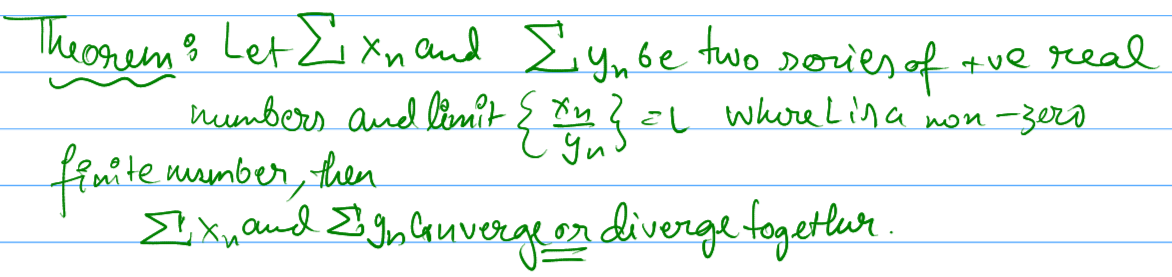 Theorem: Let ∑ xn and ∑ yn be two series of +ve real
numbers and limit { xn / yn } = L where L is a non-zero
finite number, then
∑ xn and ∑ yn Converge or diverge together.